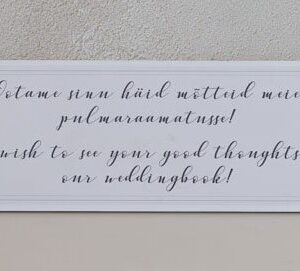 Ootame sinn häid mõtteid meie
pulmaraamatusse!
wish to see your good thoughts
our weddingbook!